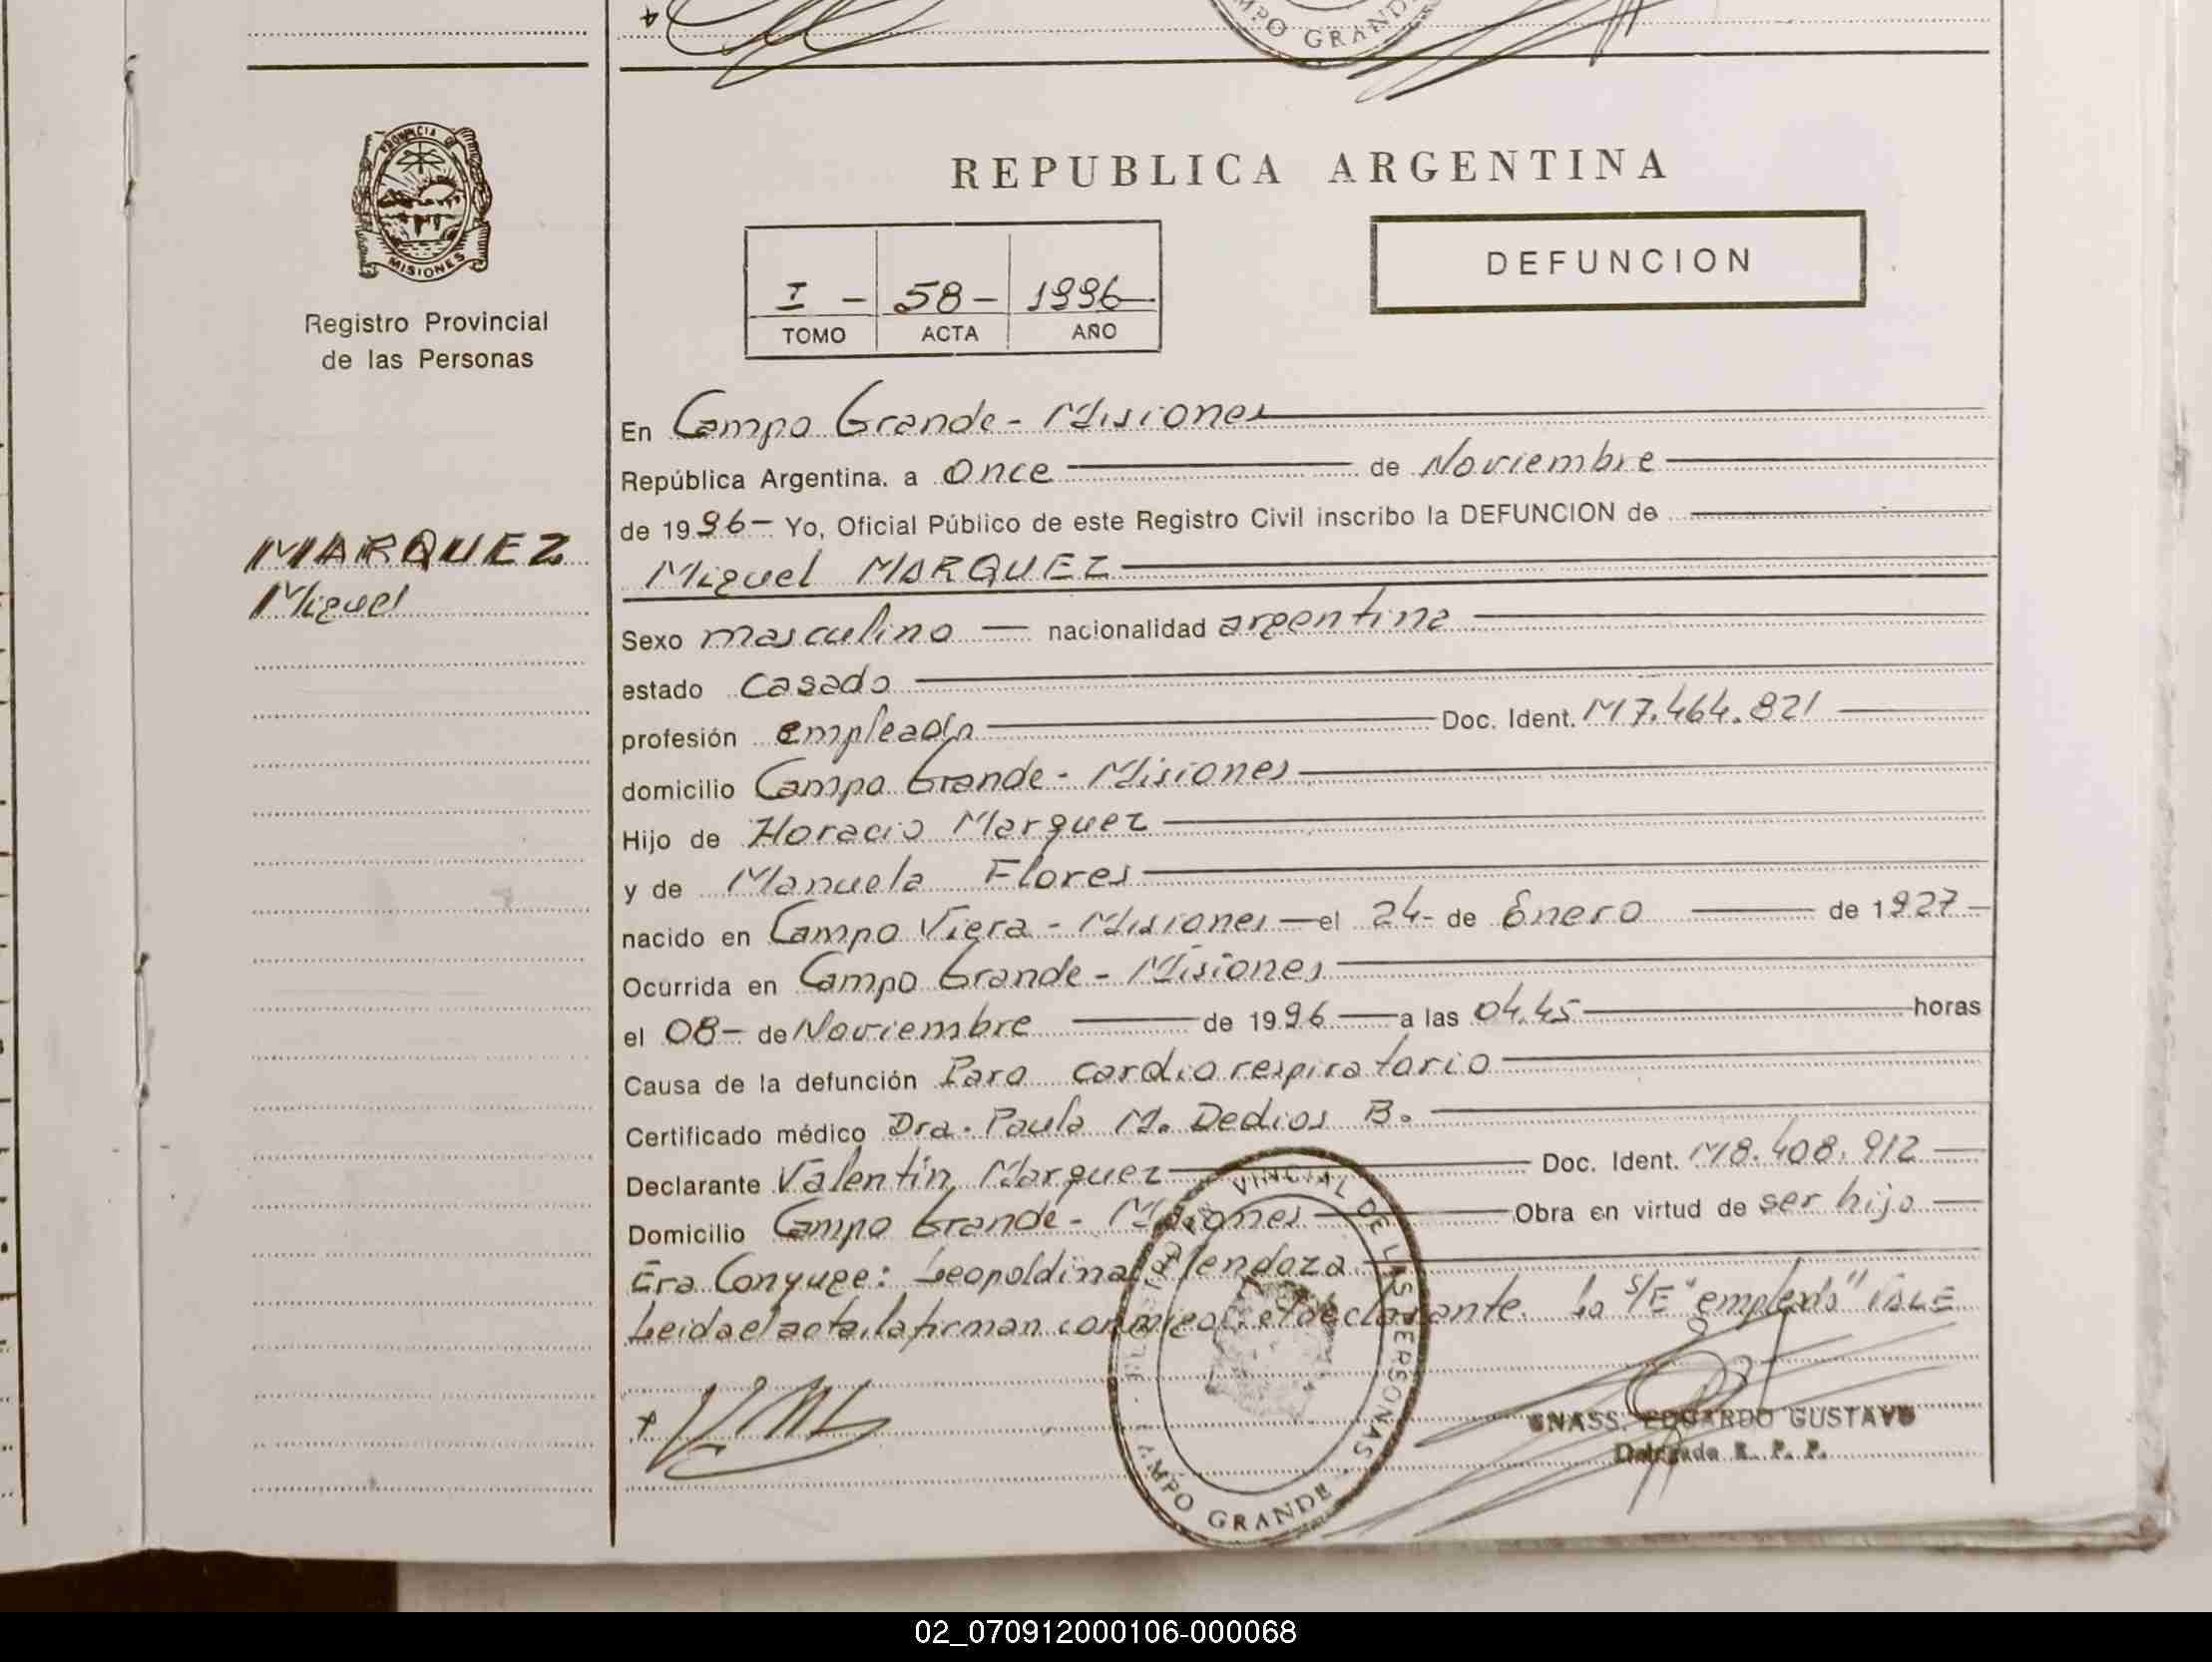 MPO GRAND
PROVINCIA DE
MISIONES
Registro Provincial
de las Personas
MARQUEZ
Miguel
REPUBLICA ARGENTINA
I - 58 - 1996
TOMO ACTA AÑO
DEFUNCION
En Campo Grande - Misiones
República Argentina, a Once de Noviembre
de 1996 - Yo, Oficial Público de este Registro Civil inscribo la DEFUNCION de
Miguel MARQUEZ
Sexo masculino — nacionalidad argentina
estado Casado
profesión empleado Doc. Ident. M7.464.821
domicilio Campo Grande - Misiones
Hijo de Horacio Marquez
y de Manuela Flores
nacido en Campo Viera - Misiones — el 24 - de Enero de 1927 -
Ocurrida en Campo Grande - Misiones
el 08 - de Noviembre de 1996 a las 04.45 horas
Causa de la defunción Paro cardiorespiratorio
Certificado médico Dra. Paula M. Dedios B.
Declarante Valentin Marquez Doc. Ident. M8.408.912
Domicilio Campo Grande - Misiones Obra en virtud de ser hijo
Era Conyuge: Leopoldina Mendoza
Leida el acta, la firman conmigo el declarante. Lo S/E "empleado" VALE
VINCIAL DE LAS PERSONAS
AMPO GRANDE
GNASS. EDUARDO GUSTAVO
Delegado R. P. P.
02_070912000106-000068